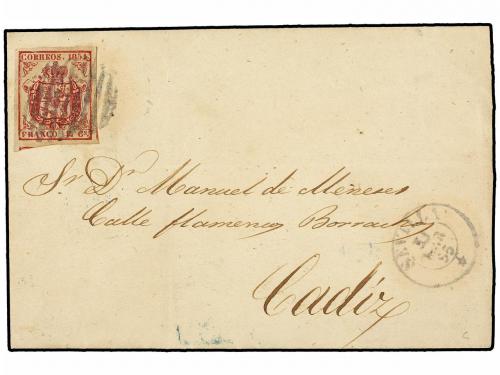 CORREOS. 1854
FRANCO
Sr Dn Manuel de Meneses
Calle flamencos Borrachos
Cadiz
SEVILLA